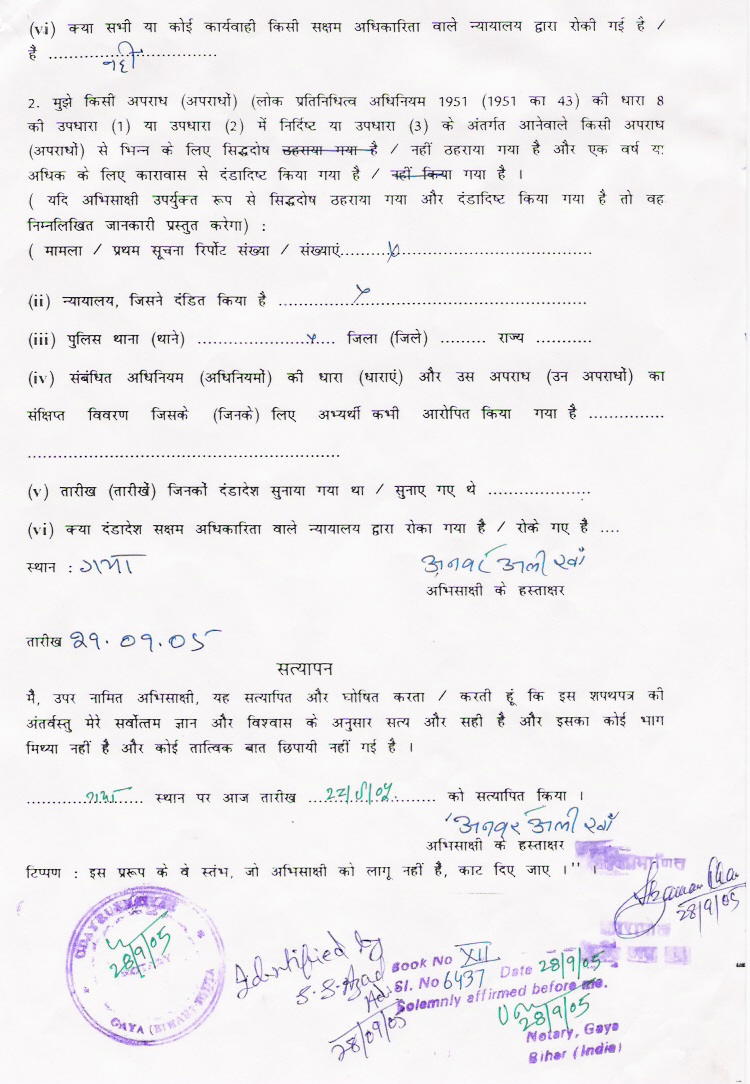 (vi) क्या सभी या कोई कार्यवाही किसी सक्षम अधिकारिता वाले न्यायालय द्वारा रोकी गई है /
है .................................
नहीं
2. मुझे किसी अपराध (अपराधों) (लोक प्रतिनिधित्व अधिनियम 1951 (1951 का 43) की धारा 8
की उपधारा (1) या उपधारा (2) में निर्दिष्ट या उपधारा (3) के अंतर्गत आनेवाले किसी अपराध
(अपराधों) से भिन्न के लिए सिद्धदोष ठहराया गया है / नहीं ठहराया गया है और एक वर्ष या
अधिक के लिए कारावास से दंडादिष्ट किया गया है / नहीं किया गया है ।
( यदि अभिसाक्षी उपर्युक्त रूप से सिद्धदोष ठहराया गया और दंडादिष्ट किया गया है तो वह
निम्नलिखित जानकारी प्रस्तुत करेगा) :
( मामला / प्रथम सूचना रिर्पोट संख्या / संख्याएं..........................................
(ii) न्यायालय, जिसने दंडित किया है ....................................................
(iii) पुलिस थाना (थाने) ........................ जिला (जिले) ......... राज्य ...........
(iv) संबंधित अधिनियम (अधिनियमों) की धारा (धाराएं) और उस अपराध (उन अपराधों) का
संक्षिप्त विवरण जिसके (जिनके) लिए अभ्यर्थी कभी आरोपित किया गया है ...............
.......................................................
(v) तारीख (तारीखें) जिनकों दंडादेश सुनाया गया था / सुनाए गए थे ....................
(vi) क्या दंडादेश सक्षम अधिकारिता वाले न्यायालय द्वारा रोका गया है / रोके गए है ....
स्थान : गया अनवर अली खाँ
अभिसाक्षी के हस्ताक्षर
तारीख 29.09.05
सत्यापन
मैं, उपर नामित अभिसाक्षी, यह सत्यापित और घोषित करता / करती हूं कि इस शपथपत्र की
अंतर्वस्तु मेरे सर्वोत्तम ज्ञान और विश्वास के अनुसार सत्य और सही है और इसका कोई भाग
मिथ्या नहीं है और कोई तात्विक बात छिपायी नहीं गई है ।
गया स्थान पर आज तारीख ...................... को सत्यापित किया ।
अनवर अली खाँ
अभिसाक्षी के हस्ताक्षर
टिप्पण : इस प्ररूप के वे स्तंभ, जो अभिसाक्षी को लागू नहीं है, काट दिए जाए ।'' ।
28/9/05
28/9/05
GAYA (BIHAR)
Identified by
S. S. Azad
Adv.
28/09/05
Book No XII
Sl. No 6437 Date 28/9/05
Solemnly affirmed before me.
28/9/05
Notary, Gaya
Bihar (India)